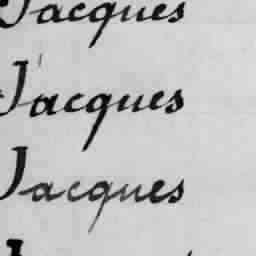 Jacques
Jacques
Jacques